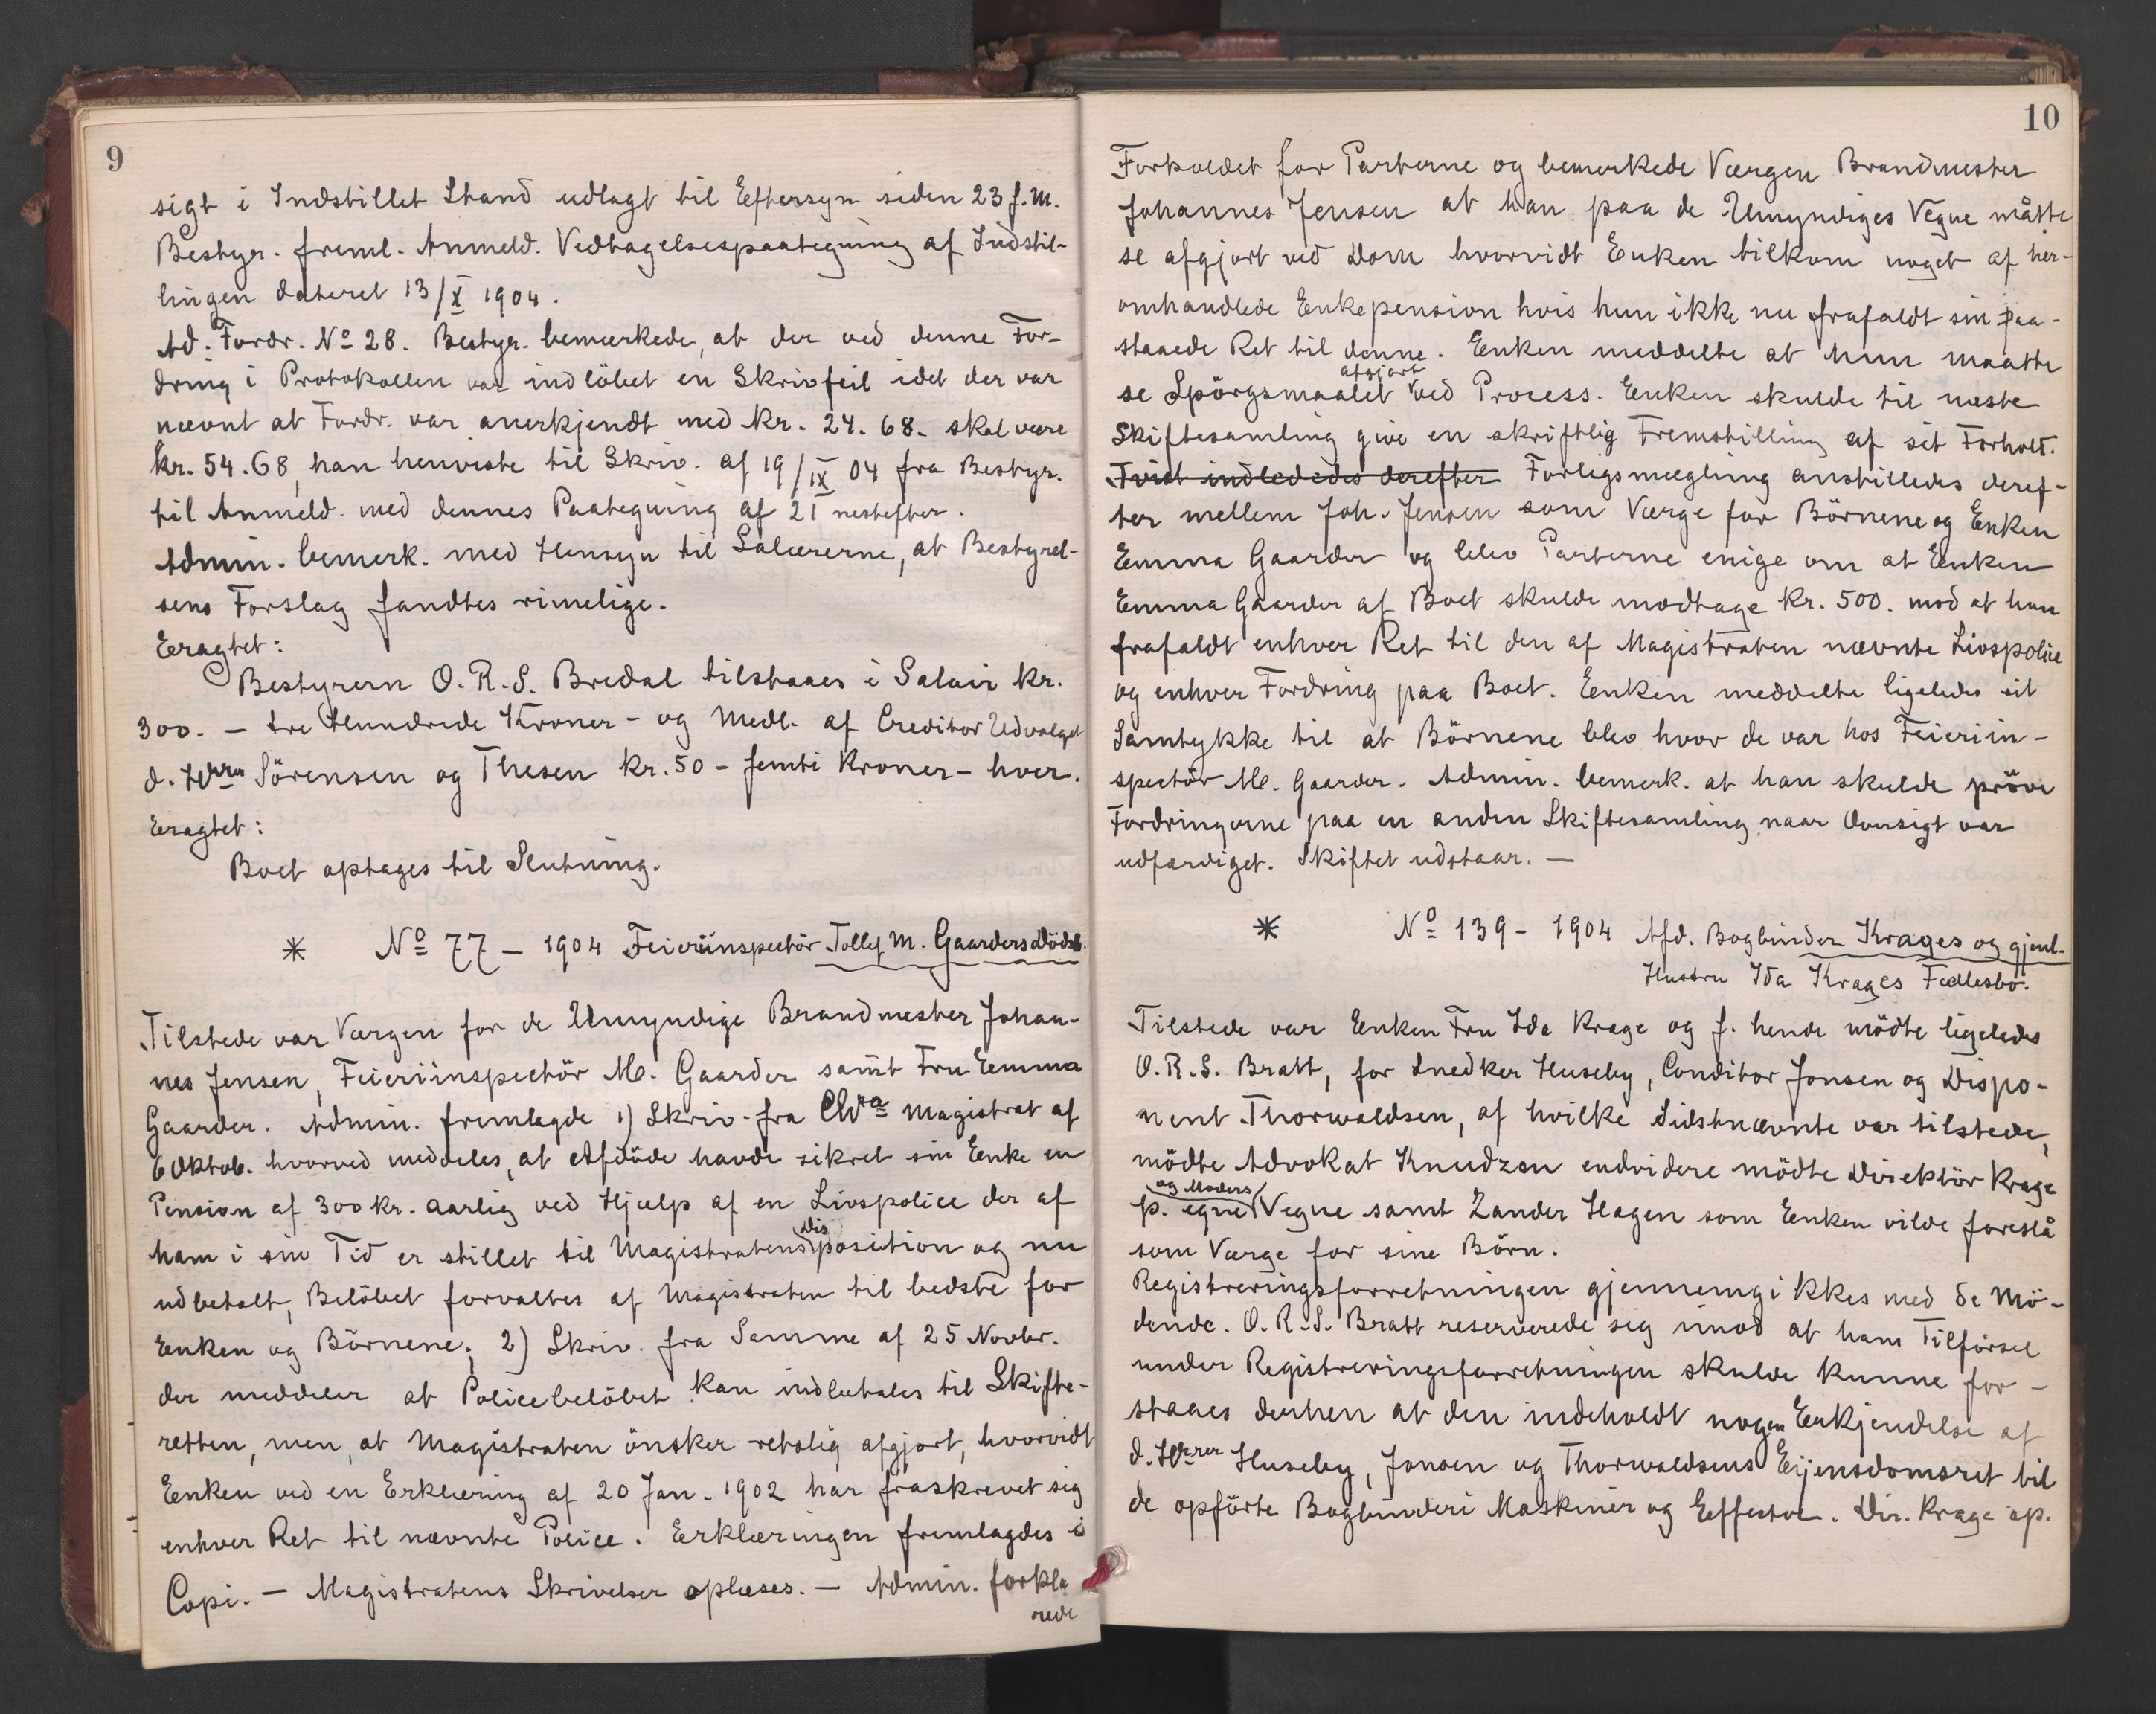 9
sigt i Indstillet Stand udlagt til Eftersyn siden 23 f.M.
Bestyr. freml. Anmeld. Vedtagelsespaategning af Indstil-
lingen dateret 13/X 1904.
Ad. Fordr. No 28. Bestyr. bemærkede, at der ved denne For-
dring i Protokollen var indlöbet en Skrivfeil idet der var
nævnt at Fordr. var anerkjendt med Kr. 24.68. skal være
Kr. 54.68, han henviste til Skriv. af 19/IX 04 fra Bestyr.
til Anmeld. med dennes Paategning af 21 nestefter.
Admin. bemerk. med Hensyn til Salærerne, at Bestyrel-
sens Forslag fandtes rimelige.
Eragtet:
Bestyreren O.R.S. Bredal tilstaaes i Salair Kr.
300. — tre Hundrede Kroner - og Medl. af Creditor Udvalget
d. Hrrn Sörensen og Thesen Kr. 50 - femti Kroner - hver.
Eragtet:
Boet optages til Slutning.
* No 77 - 1904 Feieriinspectör Tolly M. Gaarders Dödsb.
Tilstede var Værgen for de Umyndige Brandmester Johan-
nes Jensen, Feieriinspectör M. Gaarder samt Fru Emma
Gaarder. Admin. fremlagde 1) Skriv. fra Chra Magistrat af
6 Oktob. hvorved meddeles, at Afdöde havde sikret sin Enke en
Pension af 300 kr. aarlig ved Hjælp af en Livspolice der af
ham i sin Tid er stillet til Magistratens Disposition og nu
udbetalt, Belöbet forvaltes af Magistraten til bedste for
Enken og Börnene; 2) Skriv. fra Samme af 25 Novbr.
der meddeler at Policebelöbet kan indbetales til Skifte-
retten, men, at Magistraten önsker retslig afgjort, hvorvidt
Enken ved en Erklæring af 20 Jan. 1902 har fraskrevet sig
enhver Ret til nævnte Police. Erklæringen fremlagdes i
Copi. — Magistratens Skrivelser oplæses. — Admin. forkla
rede
10
Forholdet for Parterne og bemerkede Værgen Brandmester
Johannes Jensen at han paa de Umyndiges Vegne måtte
se afgjort ved Dom hvorvidt Enken tilkom noget af her-
omhandlede Enkepension hvis hun ikke nu frafaldt sin paa-
staaede Ret til denne. Enken meddelte at hun maatte
se Spörgsmaalet afgjort ved Process. Enken skulde til næste
Skiftesamling give en skriftlig Fremstilling af sit Forhold.
Tvist indlededes derefter Forlegsmegling anstilledes deref-
ter mellem Joh. Jensen som Værge for Börnene og Enken
Emma Gaarder og blev Parterne enige om at Enken
Emma Gaarder af Boet skulde modtage Kr. 500. mod at hun
frafaldt enhver Ret til den af Magistraten nævnte Livspolice
og enhver Fordring paa Boet. Enken meddelte ligeledes sit
Samtykke til at Börnene blev hvor de var hos Feieriin-
spectör M. Gaarder. Admin. bemerk. at han skulde pröve
Fordringerne paa en anden Skiftesamling naar Oversigt var
udfærdiget. Skiftet udstaar. —
* No 139 - 1904 Afd. Bogbinder Krages og gjenl.
Hustru Ida Krages Fællesbo.
Tilstede var Enken Fru Ida Krage og f. hende mödte ligeledes
O.R.S. Bratt, for Snedker Huseby, Conditor Jonsen og Dispo-
nent Thorwaldsen, af hvilke Sidstnævnte var tilstede,
mödte Advokat Knudzon endvidere mödte Direktör Krage
p. egne og Moders Vegne samt Zander Hagen som Enken vilde foreslå
som Værge for sine Börn.
Registreringsforretningen gjennemgikkes med de Mö-
dende. O.R.S. Bratt reserverede sig imod at hans Tilförsel
under Registreringsforretningen skulde kunne for-
staaes derhen at den indeholdt nogen Erkjendelse af
d. Hrrer Huseby, Jonsen og Thorwaldsens Eijensdomsret til
de opförte Bogbinderi Maskiner og Effecter. Dir. Krage op.